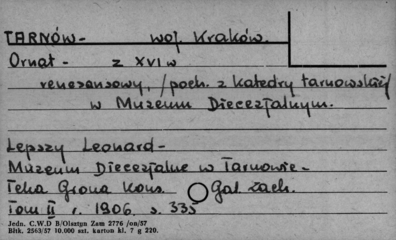 TARNÓW- woj. Kraków.
Ornat - z XVI w
renesansowy, /poch. z katedry tarnowskiej/
w Muzeum Diecezjalnym.
Lepszy Leonard -
Muzeum Diecezjalne w Tarnowie -
Teka Grona Kons. Gal. zach.
Tom II r. 1906. s. 335
Jedn. C.W.D B/Olsztyn Zam 2776 /on/57
Błtk. 2563/57 10.000 szt. karton kl. 7 g 220.